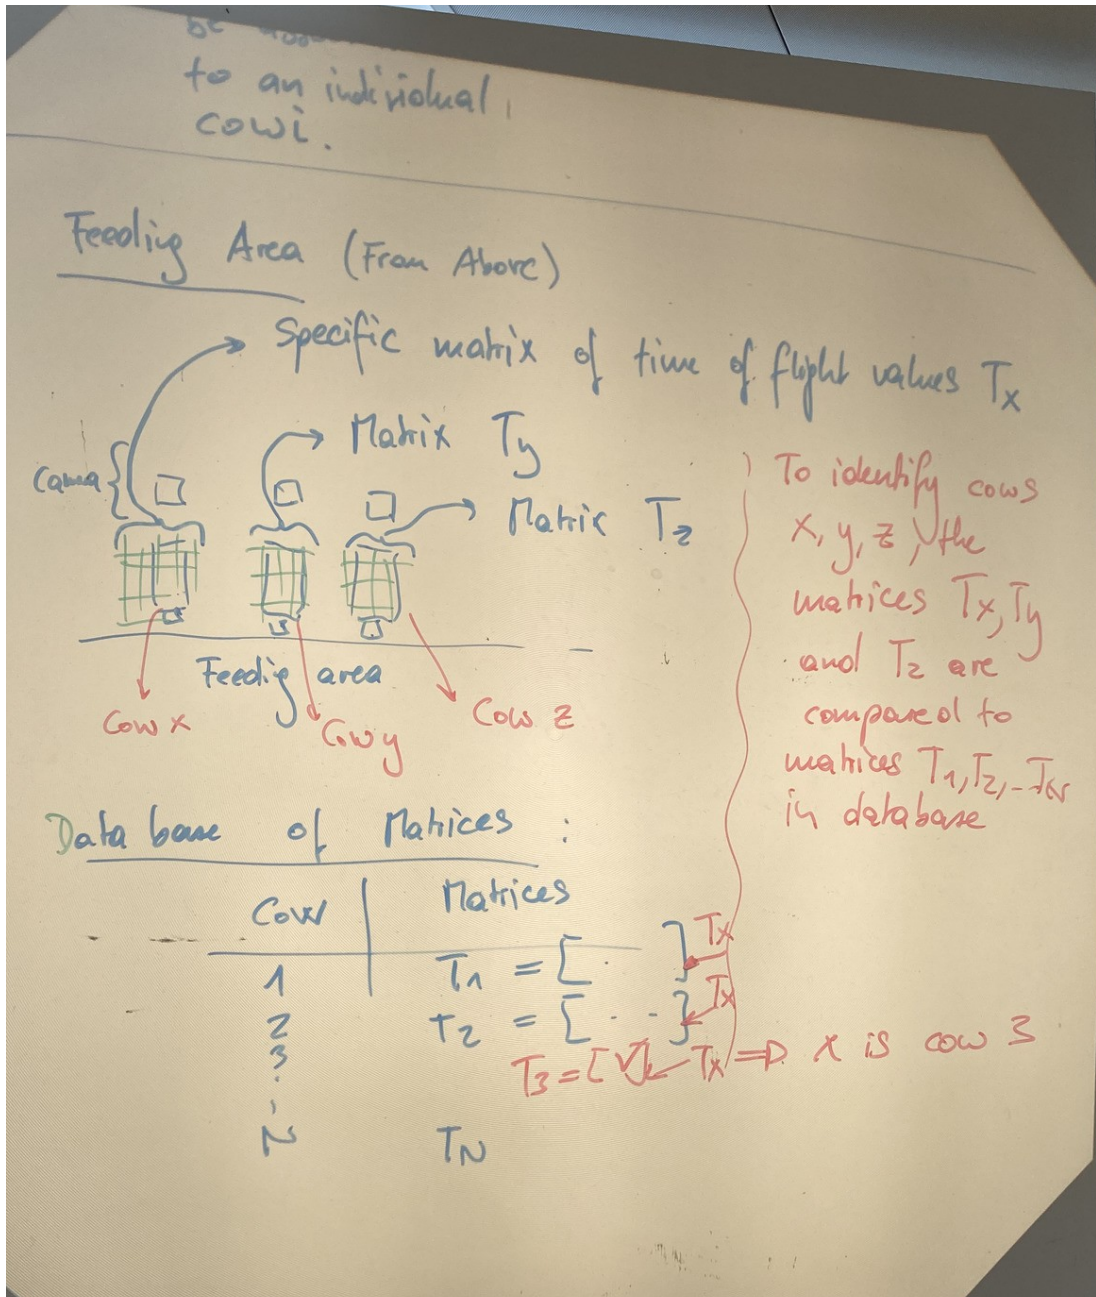 be
to an individual
cowi.
Feeding Area (From Above)
Specific matrix of time of flight values Tx
Matrix Ty
Camea
Matrix Tz
Feedig area
Cow x
Cow y
Cow z
To identify cows
x, y, z, the
matrices Tx, Ty
and Tz are
compared to
matrices T1, T2, - TN
in database
Data base of Matrices :
Cow Matrices
1 T1 = [ . ] Tx
2 T2 = [ . - ] Tx
3 T3 = [√] ← Tx ⇒ x is cow 3
.
-
N TN